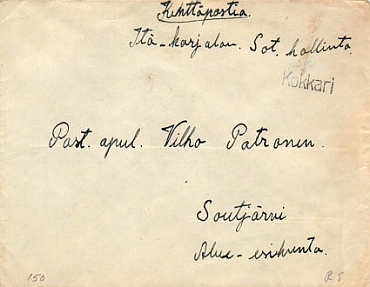 Kenttäpostia.
Itä-karjalan. Sot. hallinto.
Kokkari
Past. apul. Vilho Patronen.
Soutjärvi
Alue-esikunta.
150
R 5